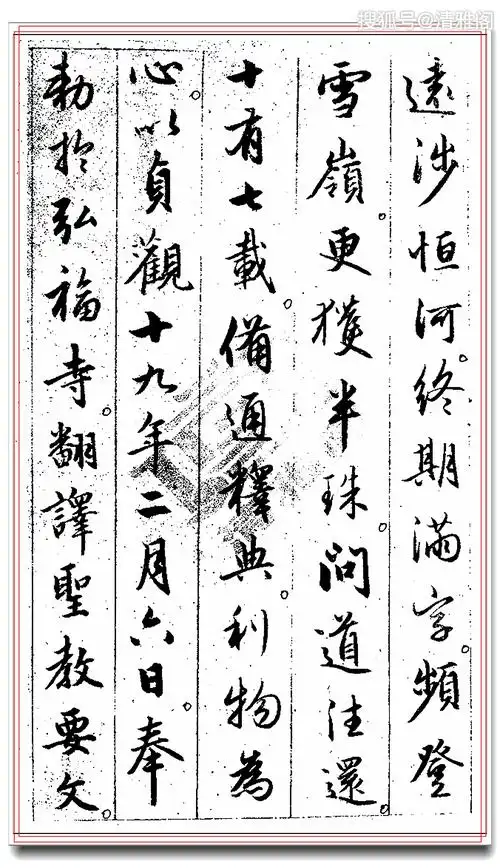 搜狐号@清雅阁
遠涉恒河。終期滿字。頻登
雪嶺。更獲半珠。問道往還。
十有七載。備通釋典。利物為
心。以貞觀十九年二月六日。奉
勅於弘福寺。翻譯聖教要文。